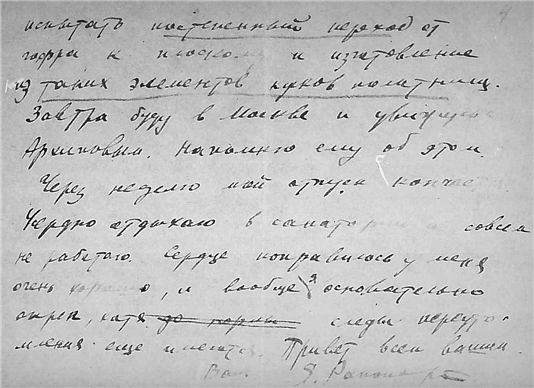 испытать постепенный переход от
гофра к плоском и изготовление
из таких элементов кусков полотнищ.
Завтра буду в Москве и увижусь с
Архиповым. Напомню ему об этом.
Через неделю мой отпуск кончае
отдыхаю в санатории а совсем
не работаю. Сердце поправилось у меня
очень хорошо, и вообще я основательно
окреп, хотя до нормы следы переуто-
мления еще имеются. Привет всем вашим.
Ваш Я. Рапопорт
4